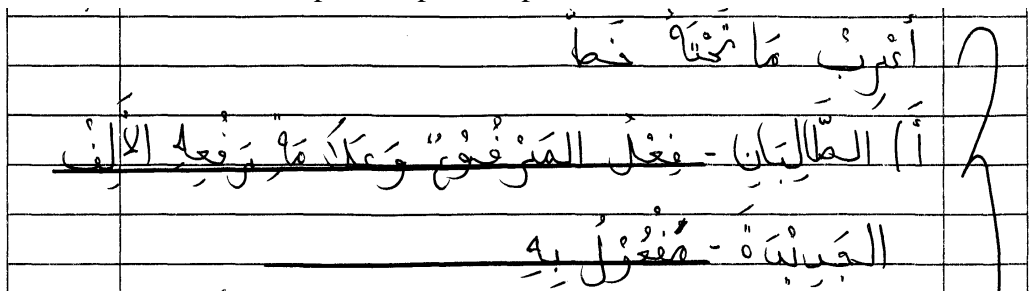 أَعْرِبْ مَا تَحْتَهُ خَطٌّ
أ) الطَّالِبَانِ - فِعْلُ المَرْفُوعٌ وَعَلَامَةِ رَفْعِهِ الأَلِفْ
الجَدِيْدَةَ - مَفْعُوْلُ بِهِ